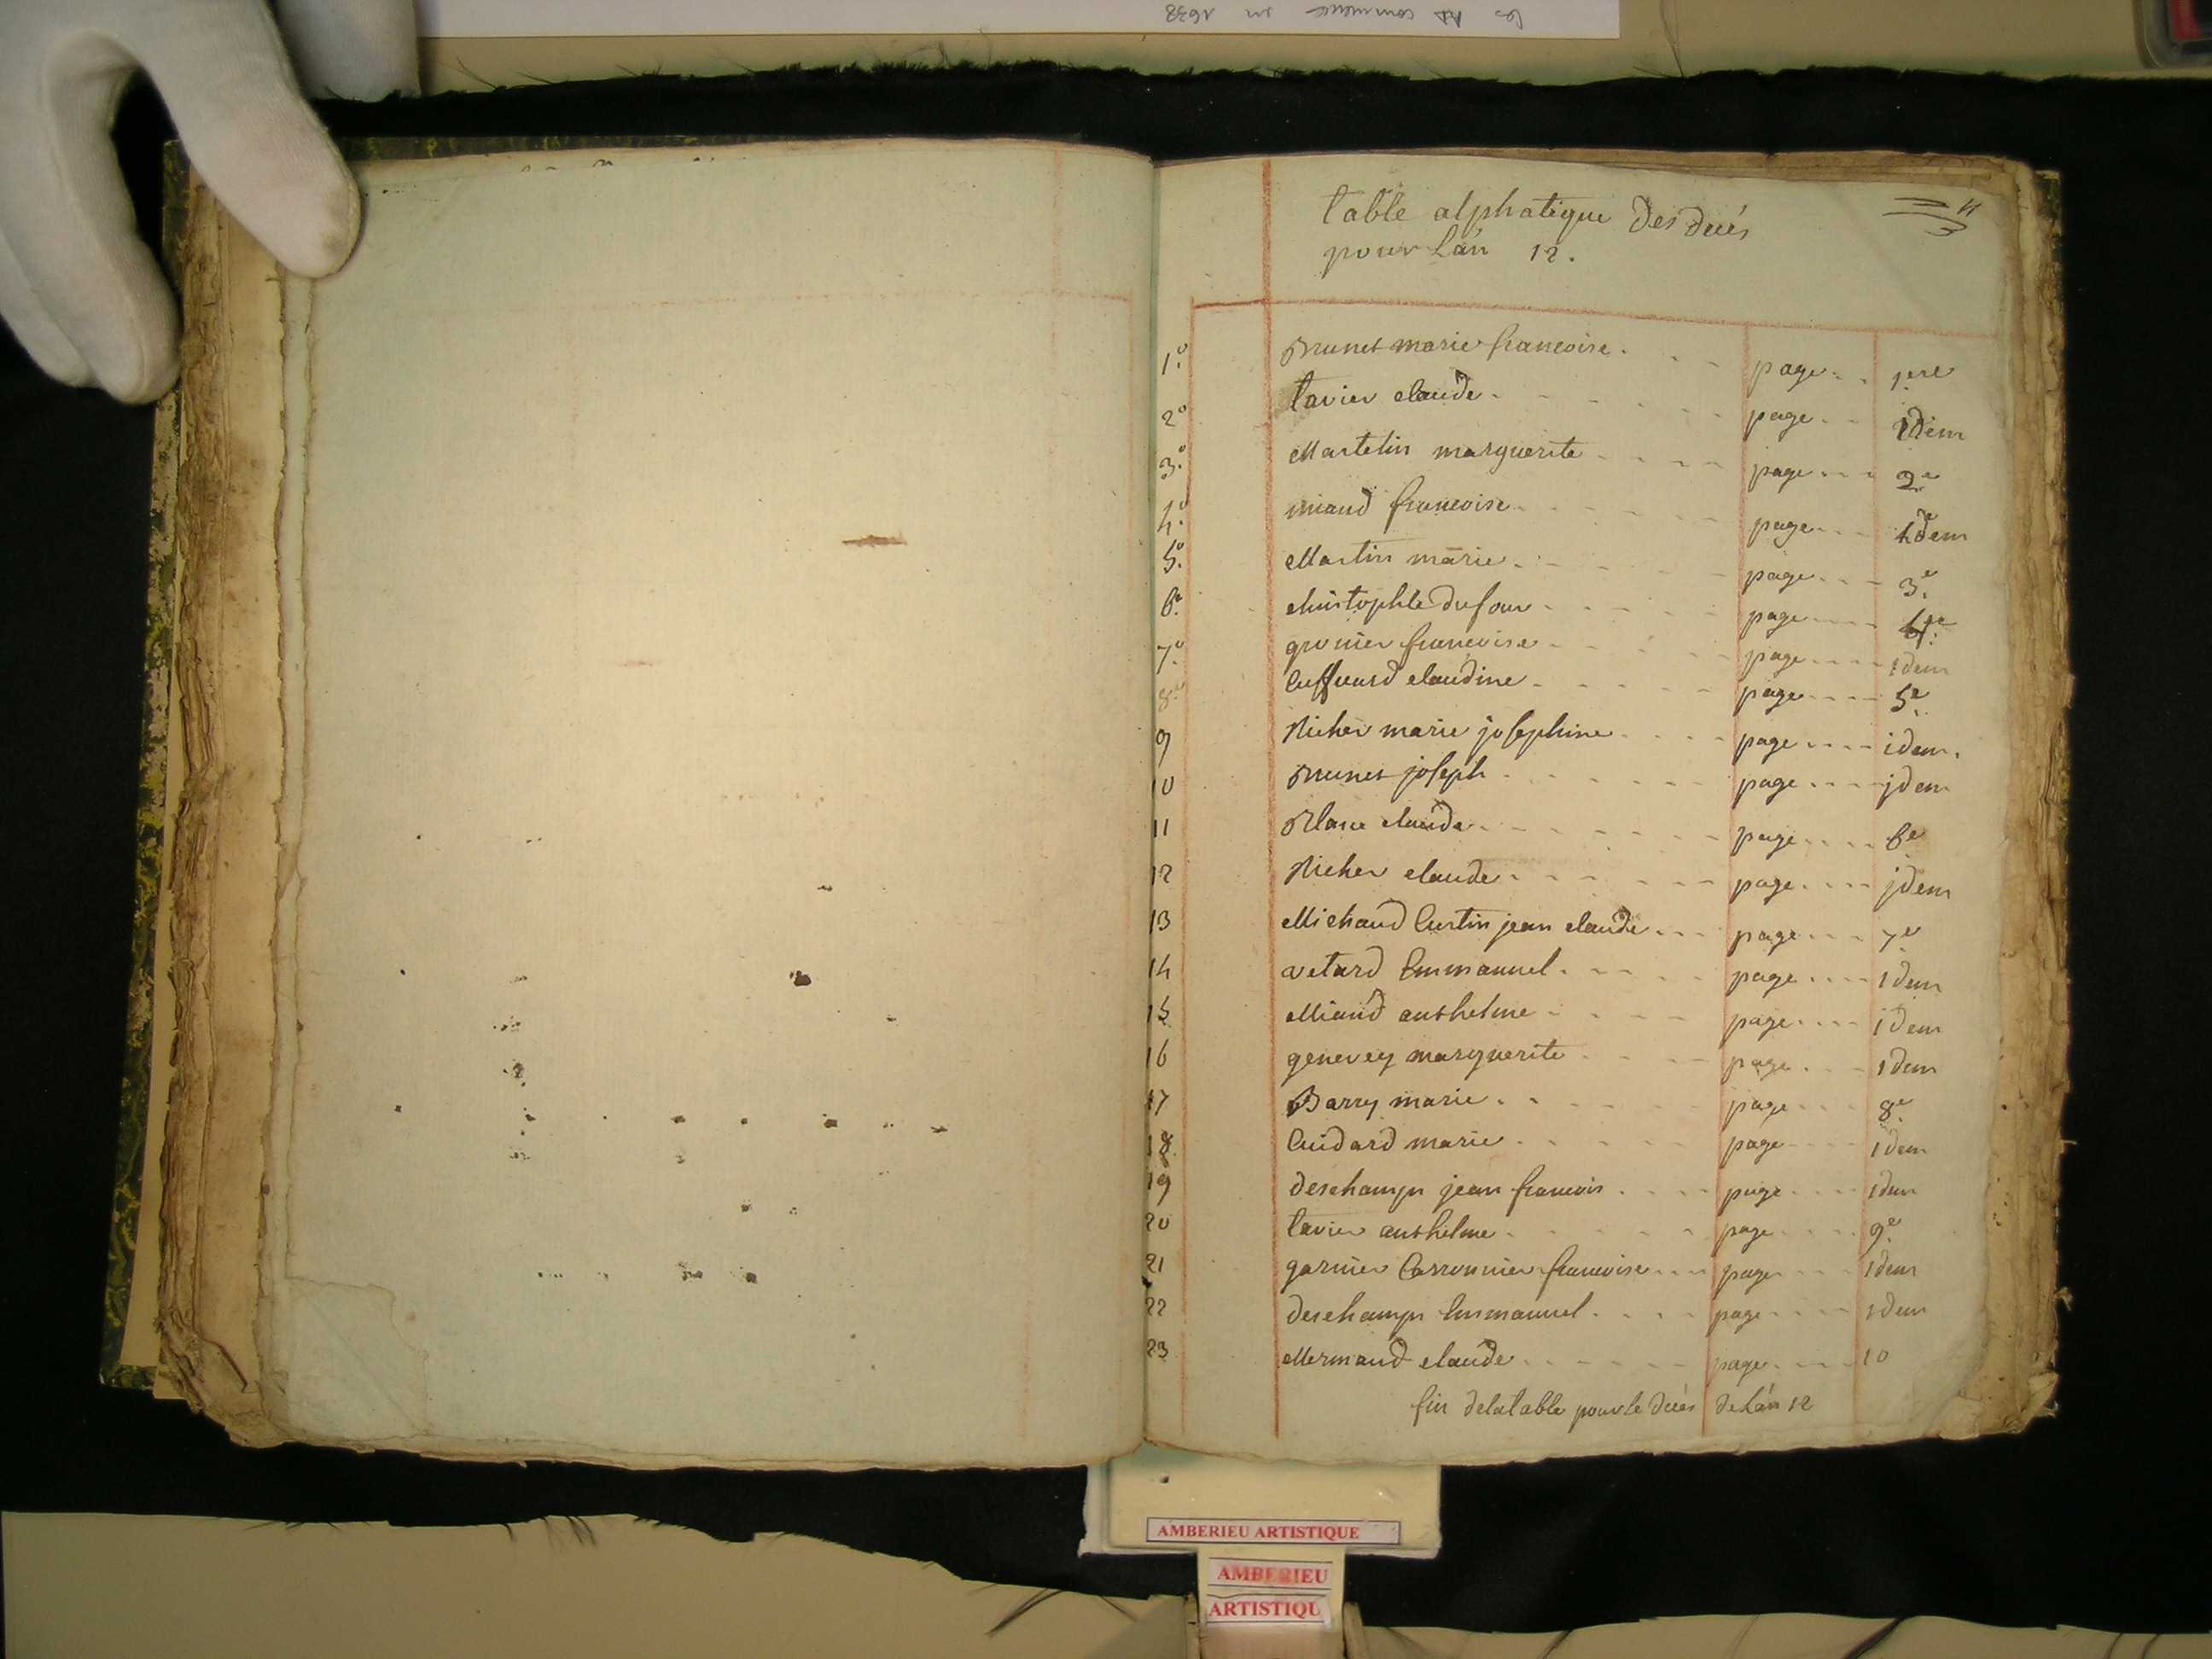 les commence en 1638
table alphatique des decés
pour l'an 12.
11
1º Brunet marie francoise page 1ere
2º tavier claude page idem
3º Martelin marguerite page 2e
4º miand francoise page idem
5º Martin marie page 3e
6º christophle dufour page 4e
7º francoise page idem
8º Cuffuard claudine page 5e
9 Richer marie josephine page idem
10 Brunet joseph page jdem
11 Blanc claude page 6e
12 Richer claude page jdem
13 Michaud Curtin jean claude page 7e
14 avetard Emmanuel page idem
15 Miand anthelme page idem
16 genevey marguerite page idem
17 Barry marie page 8e
18 Cuidard marie page idem
19 deschamps jean francois page idem
20 tavier anthelme page 9e
21 garnier Carronnier francoise page idem
22 deschamps Emmanuel page idem
23 Mermand claude page 10
fin delatable pour le decés de l'an 12
AMBERIEU ARTISTIQUE
AMBERIEU
ARTISTIQU